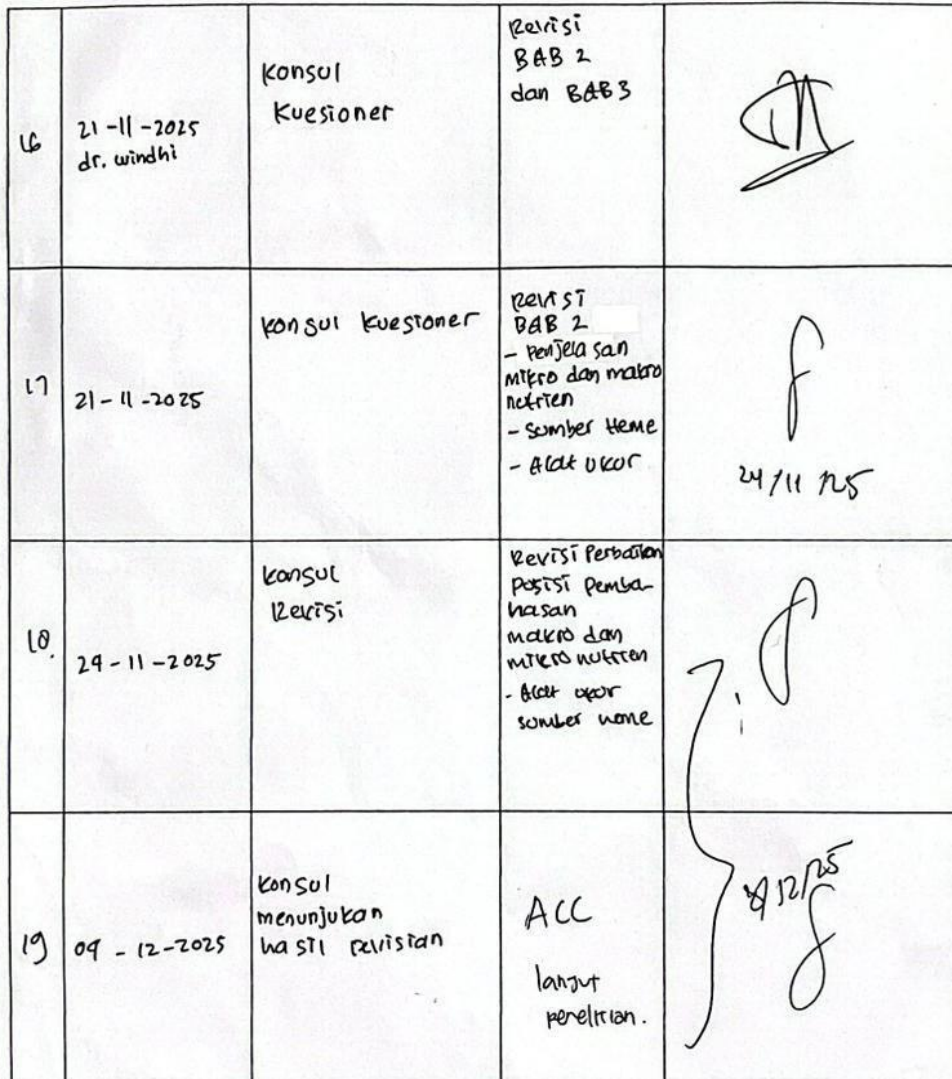 16
21-11-2025
dr. windhi
Konsul
Kuesioner
Revisi
BAB 2
dan BAB 3
17
21-11-2025
Konsul Kuesioner
Revisi
BAB 2
- Penjelasan
mikro dan makro
nutrien
- Sumber Heme
- Alat ukur
24/11/25
18.
24-11-2025
Konsul
Revisi
Revisi Perbaikan
Posisi Pemba-
hasan
makro dan
mikro nutrien
- Alat ukur
sumber heme
19
09-12-2025
Konsul
menunjukan
hasil revisian
ACC
lanjut
penelitian.
12/25